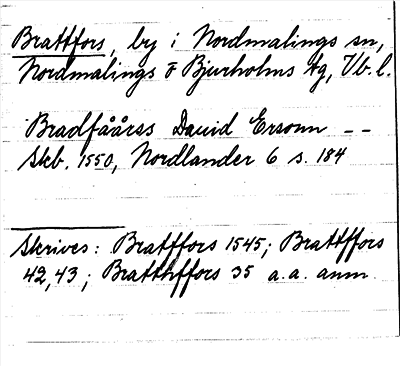 Brattfors, by i Nordmalings sn,
Nordmalings o Bjurholms tg, Vb. l.
Bradfåårss Dauid Ersonn --
Skb. 1550, Nordlander 6 s. 184
Skrives: Bratffors 1545; Brattffors
42, 43; Bratthffors 35 a.a. anm.